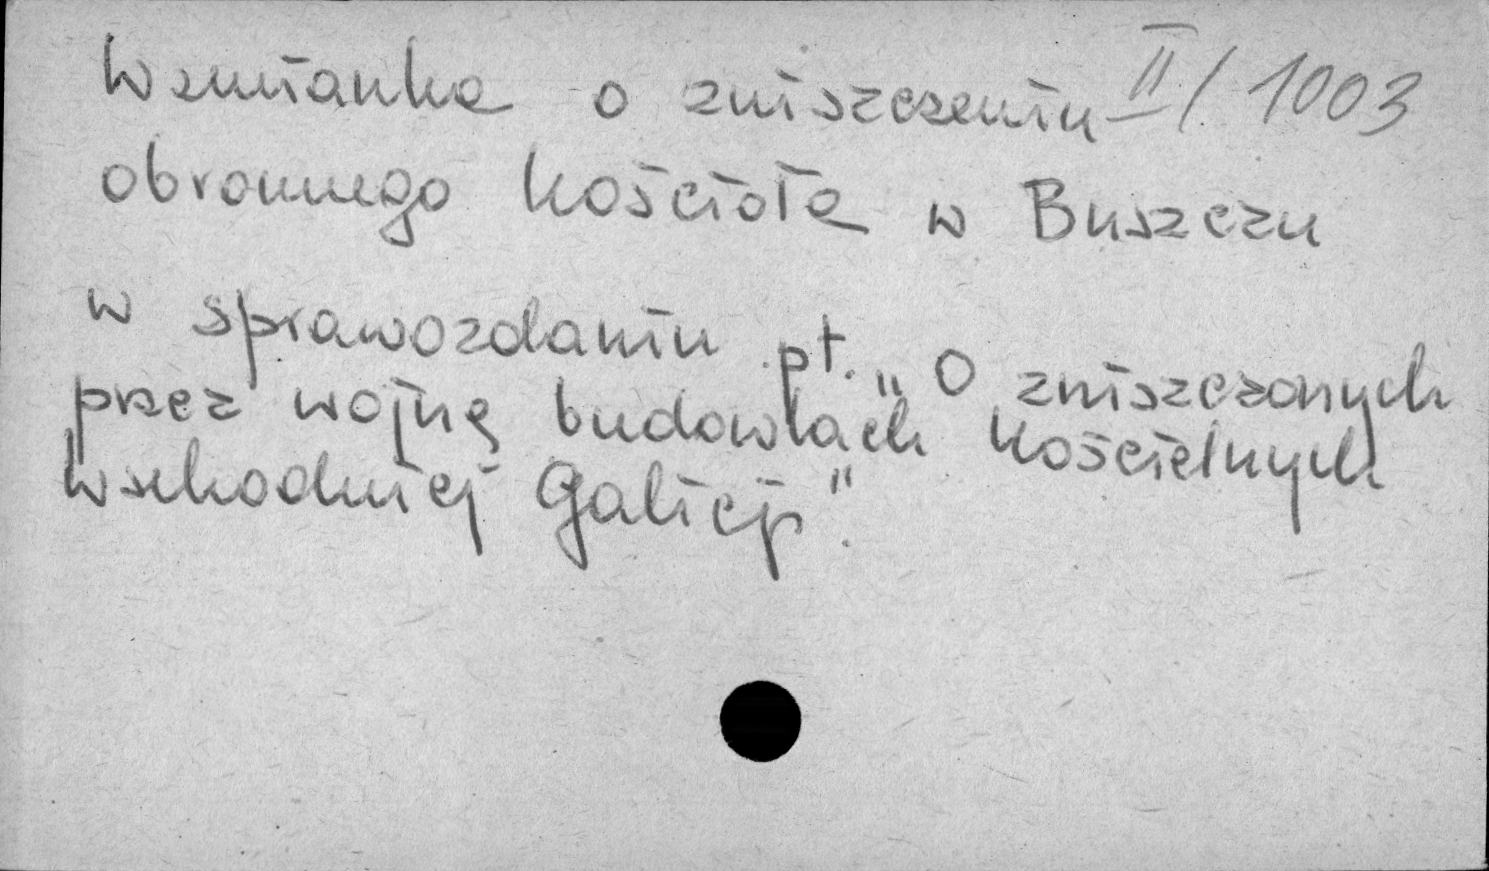 Wzmianka o zniszczeniu II/1003
obronnego kościoła w Buszczu
w sprawozdaniu pt. „O zniszczonych
przez wojnę budowlach kościelnych
wschodniej Galicji".